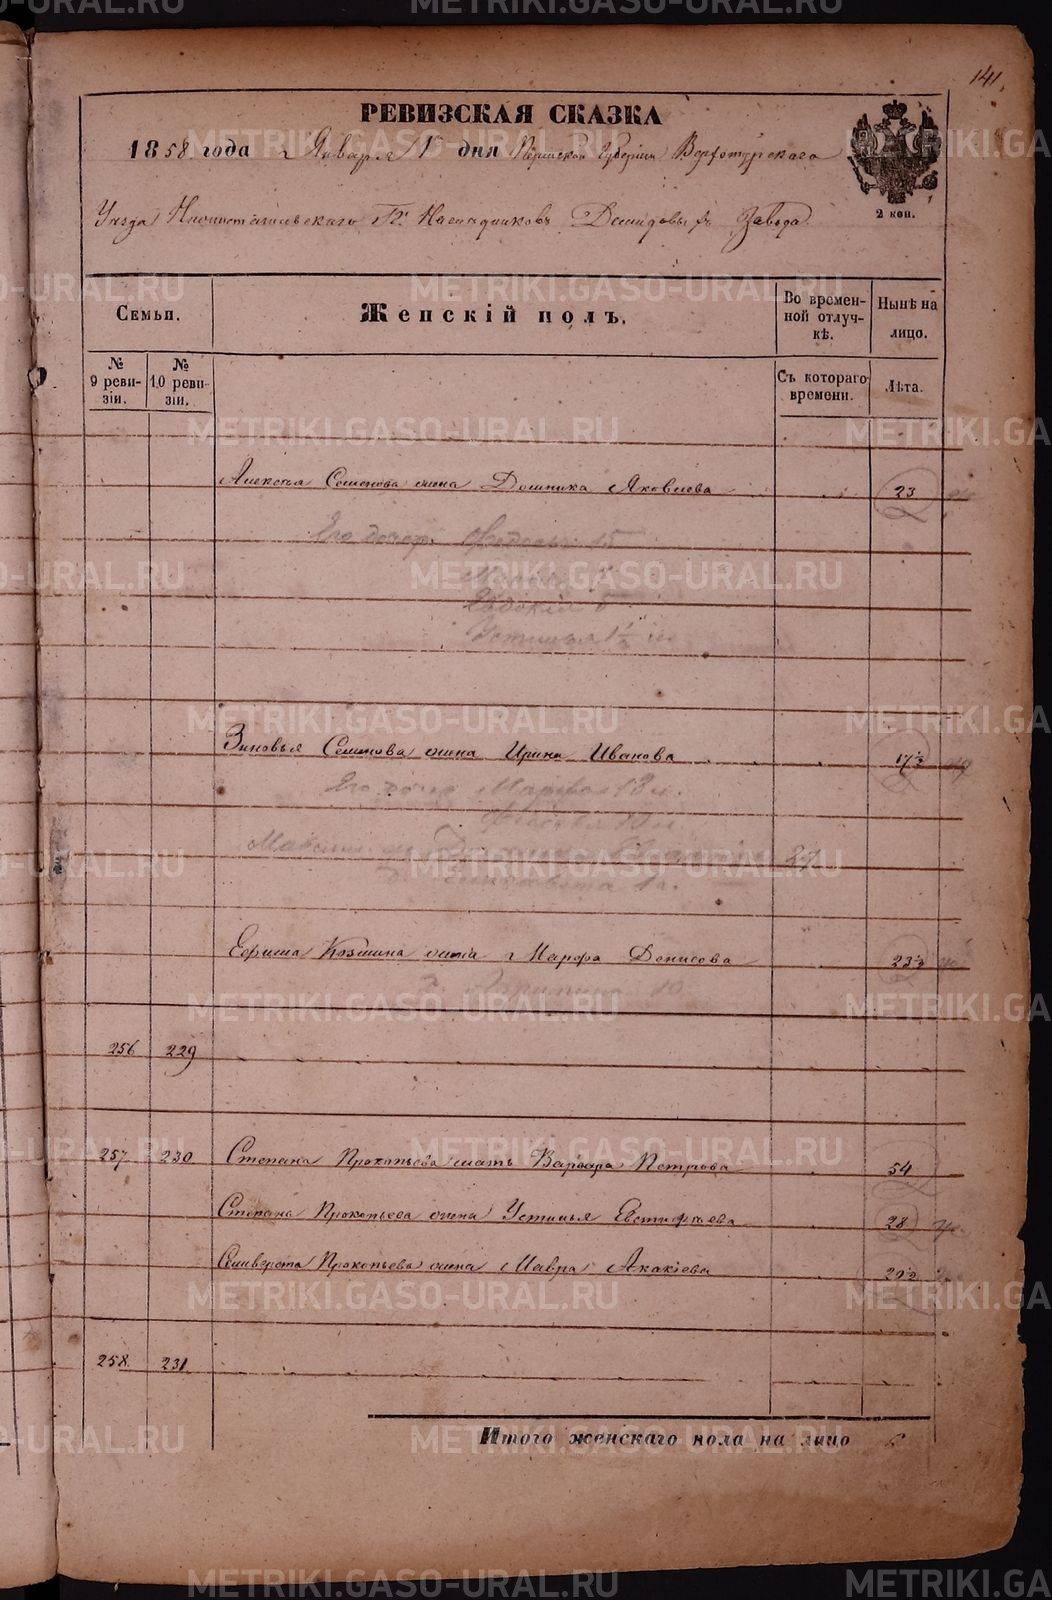 141.
РЕВИЗСКАЯ СКАЗКА
1858 года Января 1 дня Пермской Губернии Верхотурскаго
Уезда Нижнетагильскаго Гг. Наследниковъ Демидовыхъ Завода
2 коп.
Семьи.
Женскій полъ.
Во времен-
ной отлуч-
кѣ.
Нынѣ на
лицо.
№
9 реви-
зіи.
№
10 реви-
зіи.
Съ котораго
времени.
Лѣта.
Алексѣя Семенова жена Домника Яковлева 23
Его дочер. Федосья 15
Евдокія 5
Устинья 1½
Зиновья Семенова жена Ирина Иванова 17½
Его дочь Марфа 13 л.
27
Елизавета 1 г.
Ефима Козмина жена Марфа Денисова 23½
10
256 229
257 230 Степана Прокопьева мать Варвара Петрова 54
Степана Прокопьева жена Устинья Евстифѣева 28
Селиверста Прокопьева жена Мавра Акакіева 20½
258. 231
Итого женскаго пола на лицо 6
METRIKI.GASO-URAL.RU